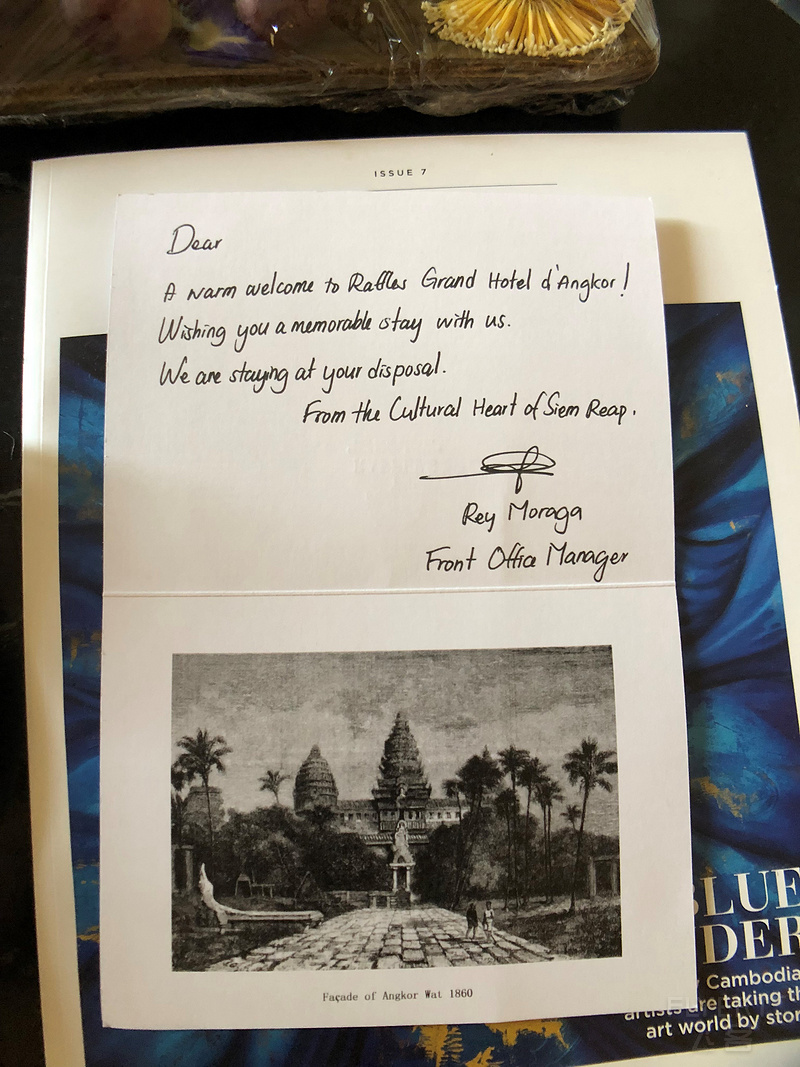 ISSUE 7
Dear
A warm welcome to Raffles Grand Hotel d'Angkor!
Wishing you a memorable stay with us.
We are staying at your disposal.
From the Cultural Heart of Siem Reap.
Rey Moraga
Front Office Manager
Façade of Angkor Wat 1860
BLUE
DER
Cambodia
artists are taking th
art world by stor